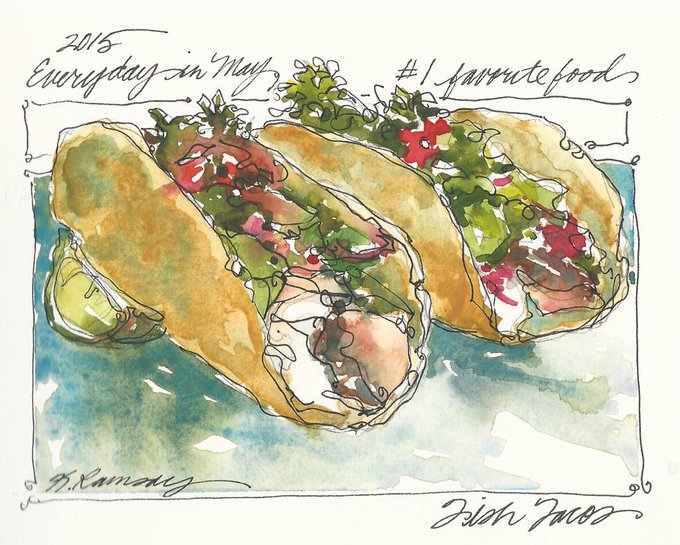 2015
Everyday in May, #1 favorite foods
K. Ramsay
Fish Tacos